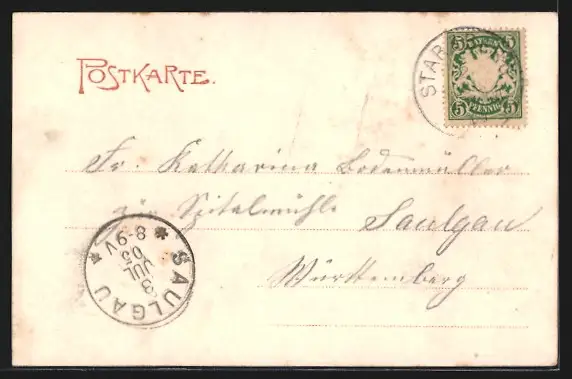 POSTKARTE.
5 BAYERN 5
5 PFENNIG 5
STAR
Fr. Katharina Bodenmüller
Spitalmühle
Saulgau
Württemberg
SAULGAU
3
JUL
05
8-9V